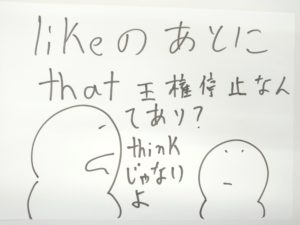 likeのあとに
that 王権停止なん
てあり?
think
じゃない
よ